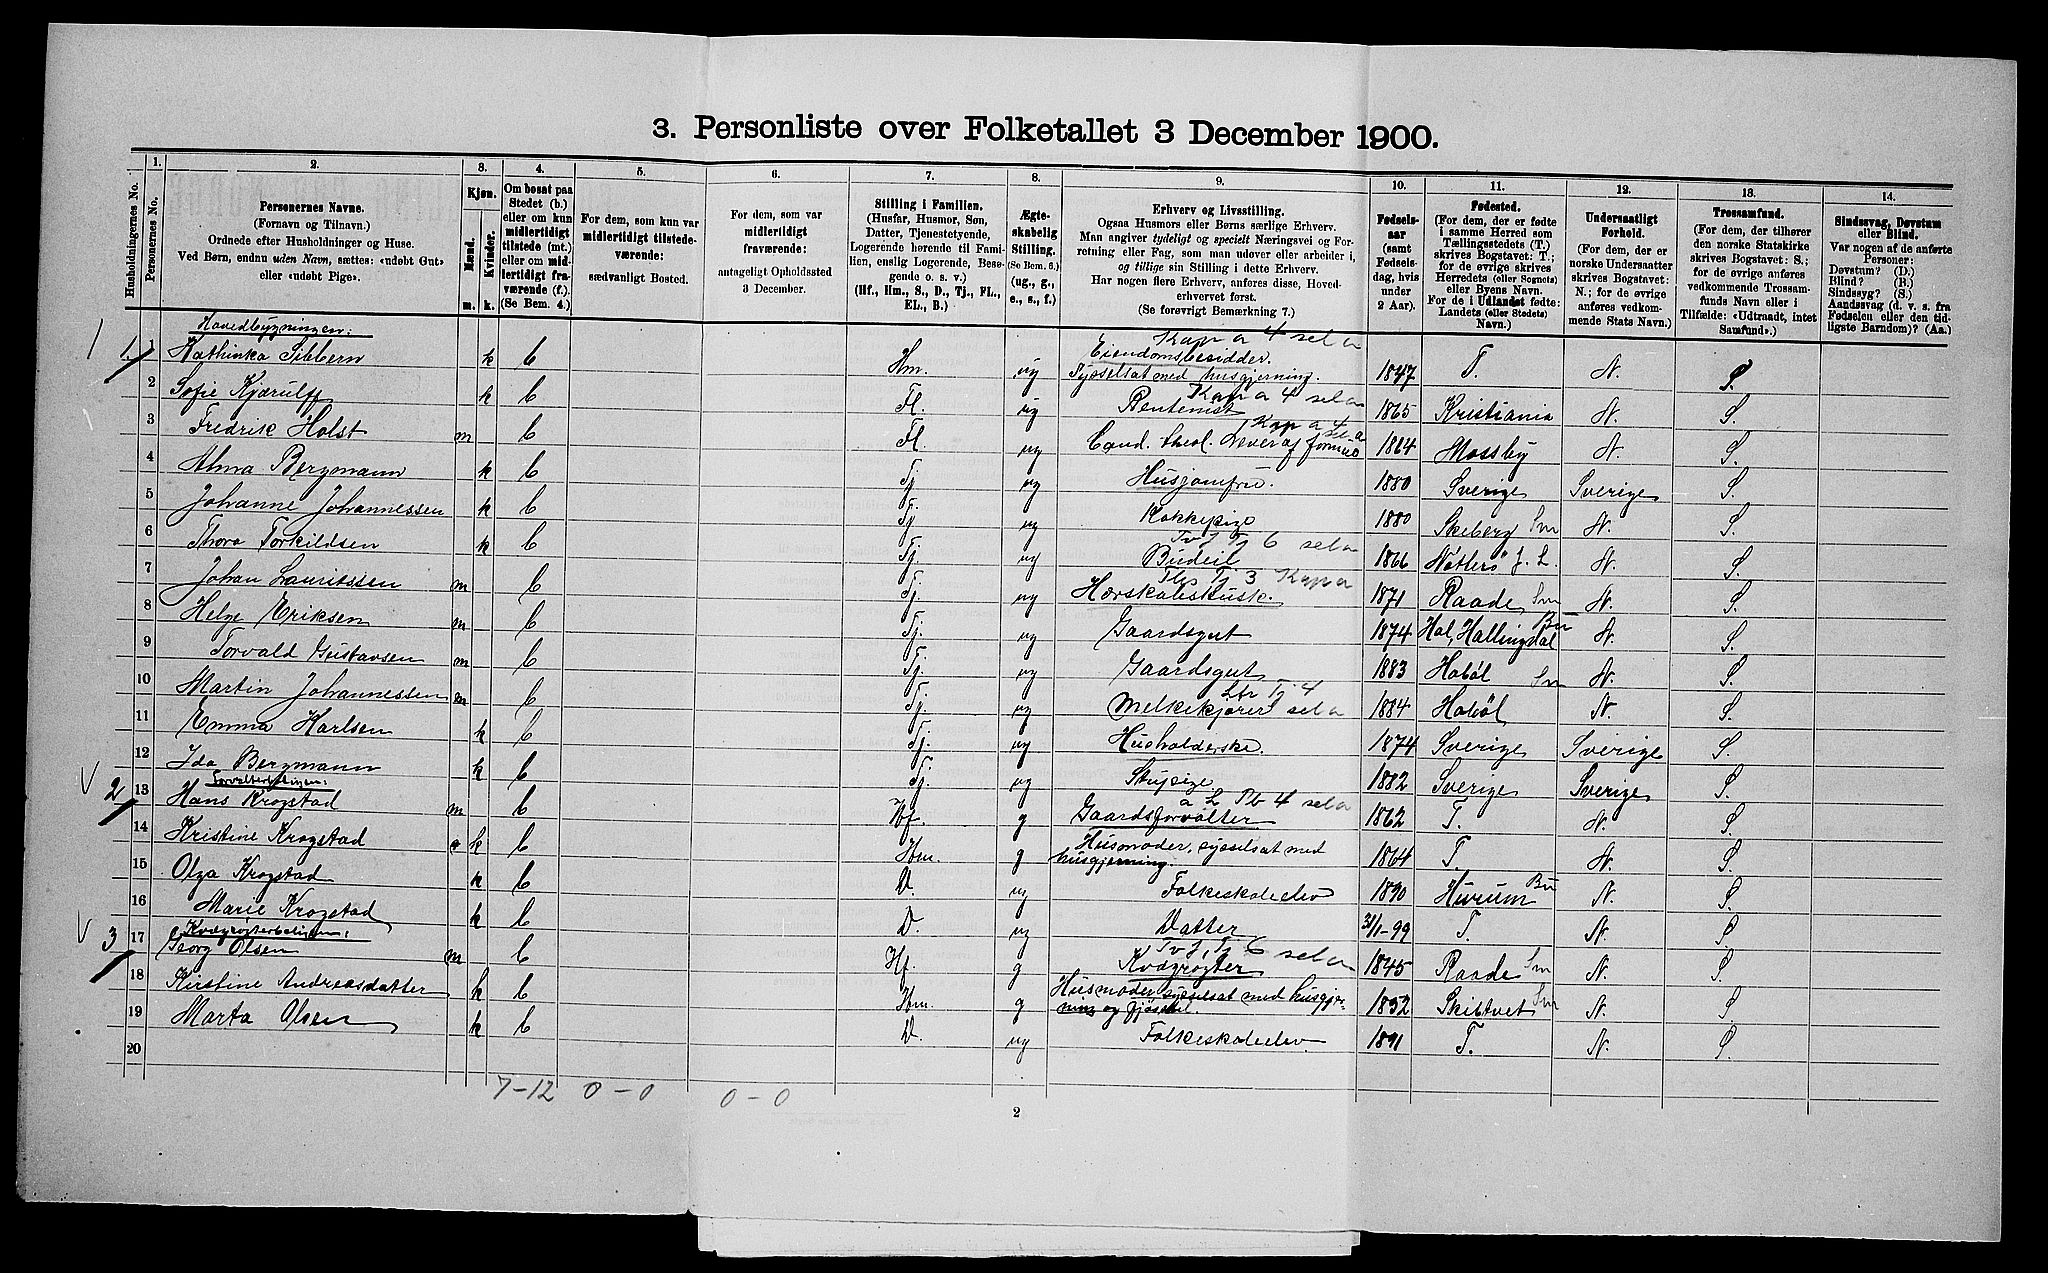 3. Personliste over Folketallet 3 December 1900.
Husholdningernes No.
1.
Personernes No.
2.
Personernes Navne.
(Fornavn og Tilnavn.)
Ordnede efter Husholdninger og Huse.
Ved Børn, endnu uden Navn, sættes: «udøbt Gut»
eller «udøbt Pige».
3.
Kjøn.
Mænd.
Kvinder.
m. k.
4.
Om bosat paa
Stedet (b.)
eller om kun
midlertidigt
tilstede (mt.)
eller om mid-
lertidigt fra-
værende (f.).
(Se Bem. 4.)
5.
For dem, som kun var
midlertidigt tilstede-
værende:
sædvanligt Bosted.
6.
For dem, som var
midlertidigt
fraværende:
antageligt Opholdssted
3 December.
7.
Stilling i Familien.
(Husfar, Husmor, Søn,
Datter, Tjenestetyende,
Logerende hørende til Fami-
lien, enslig Logerende, Besø-
gende o. s. v.)
(Hf., Hm., S., D., Tj., FL.,
EL., B.)
8.
Ægte-
skabelig
Stilling.
(Se Bem. 6.)
(ug., g.,
e., s., f.)
9.
Erhverv og Livsstilling.
Ogsaa Husmors eller Børns særlige Erhverv.
Man angiver tydeligt og specielt Næringsvei og For-
retning eller Fag, som man udøver eller arbeider i,
og tillige sin Stilling i dette Erhverv.
Har nogen flere Erhverv, anføres disse, Hoved-
erhvervet først.
(Se forøvrigt Bemærkning 7.)
10.
Fødsels-
aar
(samt
Fødsels-
dag, hvis
under
2 Aar).
11.
Fødested.
(For dem, der er fødte
i samme Herred som
Tællingsstedets (T.)
skrives Bogstavet: T.;
for de øvrige skrives
Herredets (eller Sognets)
eller Byens Navn.
For de i Udlandet fødte:
Landets (eller Stedets)
Navn.)
12.
Undersaatligt
Forhold.
(For dem, der er
norske Undersaatter
skrives Bogstavet:
N.; for de øvrige
anføres vedkom-
mende Stats Navn.)
13.
Trossamfund.
(For dem, der tilhører
den norske Statskirke
skrives Bogstavet: S.;
for de øvrige anføres
vedkommende Trossam-
funds Navn eller i
Tilfælde: «Udtraadt, intet
Samfund».)
14.
Sindssvag, Døvstum
eller Blind.
Var nogen af de anførte
Personer:
Døvstum? (D.)
Blind? (B.)
Sindssyg? (S.)
Aandssvag (d. v. s. fra
Fødselen eller den tid-
ligste Barndom)? (Aa.)
Hovedbygningen:
Kap a 4 sel a
1. 1 Kathinka Sibbern k b Hm. ug Eiendomsbesidder. Sysselsat med husgjerning. 1847 T. N. S.
Kap a 4 sel a
2 Sofie Kjærulff k b Fl. ug Rentenist 1865 Kristiania N. S.
Kap a 4 sel a
3 Fredrik Holst m b Fl ug Cand. theol. Lever af formue 1864 Mossby N. S.
4 Alma Bergmann k b Tj ug Husjomfru. 1880 Sverige Sverige S.
5 Johanne Johannessen k b Tj. ug Kokkepige 1880 Skeberg Sm N. S.
Tvf Tj 6 sel a
6 Thora Torkildsen k b Tj. ug Budeie 1866 Nøtterø J. L. N. S.
Tls Tj 3 Kap a
7 Johan Lauritssen m b Tj. ug Herskabskusk. 1871 Raade Sm N. S.
8 Helge Eriksen m b Tj. ug Gaardsgut 1874 Hol, Hallingdal Bu N. S.
9 Torvald Gustavsen m b Tj. ug Gaardsgut 1883 Hobøl Sm N. S.
Ltr Tj 4 sel a
10 Martin Johannessen m b Tj. ug Melkekjører 1884 Hobøl N. S.
11 Emma Karlsen k b Tj. ug Husholderske. 1874 Sverige Sverige S.
12 Ida Bergmann k b Tj. ug Stupige 1882 Sverige Sverige S.
Forvalterboligen:
a L Pb 4 sel a
2 13 Hans Krogstad m b Hf. g Gaardsforvalter 1862 T. N. S.
14 Kristine Krogstad k b Hm. g Husmoder, sysselsat med husgjerning. 1864 T. N. S.
15 Olga Krogstad k b D. ug Folkeskoleelev 1890 Hurum Bu N. S.
16 Marie Krogstad k b D. ug Datter 31/1-99 T. N. S.
Kvægrøgterboligen:
Tvf, Tj 6 sel a
3 17 Georg Olsen m b Hf. g Kvægrøgter 1845 Raade Sm N. S.
18 Kirstine Andreasdatter k b Hm. g Husmoder sysselsat med husgjerning og fjøsstel. 1852 Skibtvet Sm N. S.
19 Marta Olsen k b D. ug Folkeskoleelev. 1891 T. N. S.
20
7-12 0-0 0-0
2